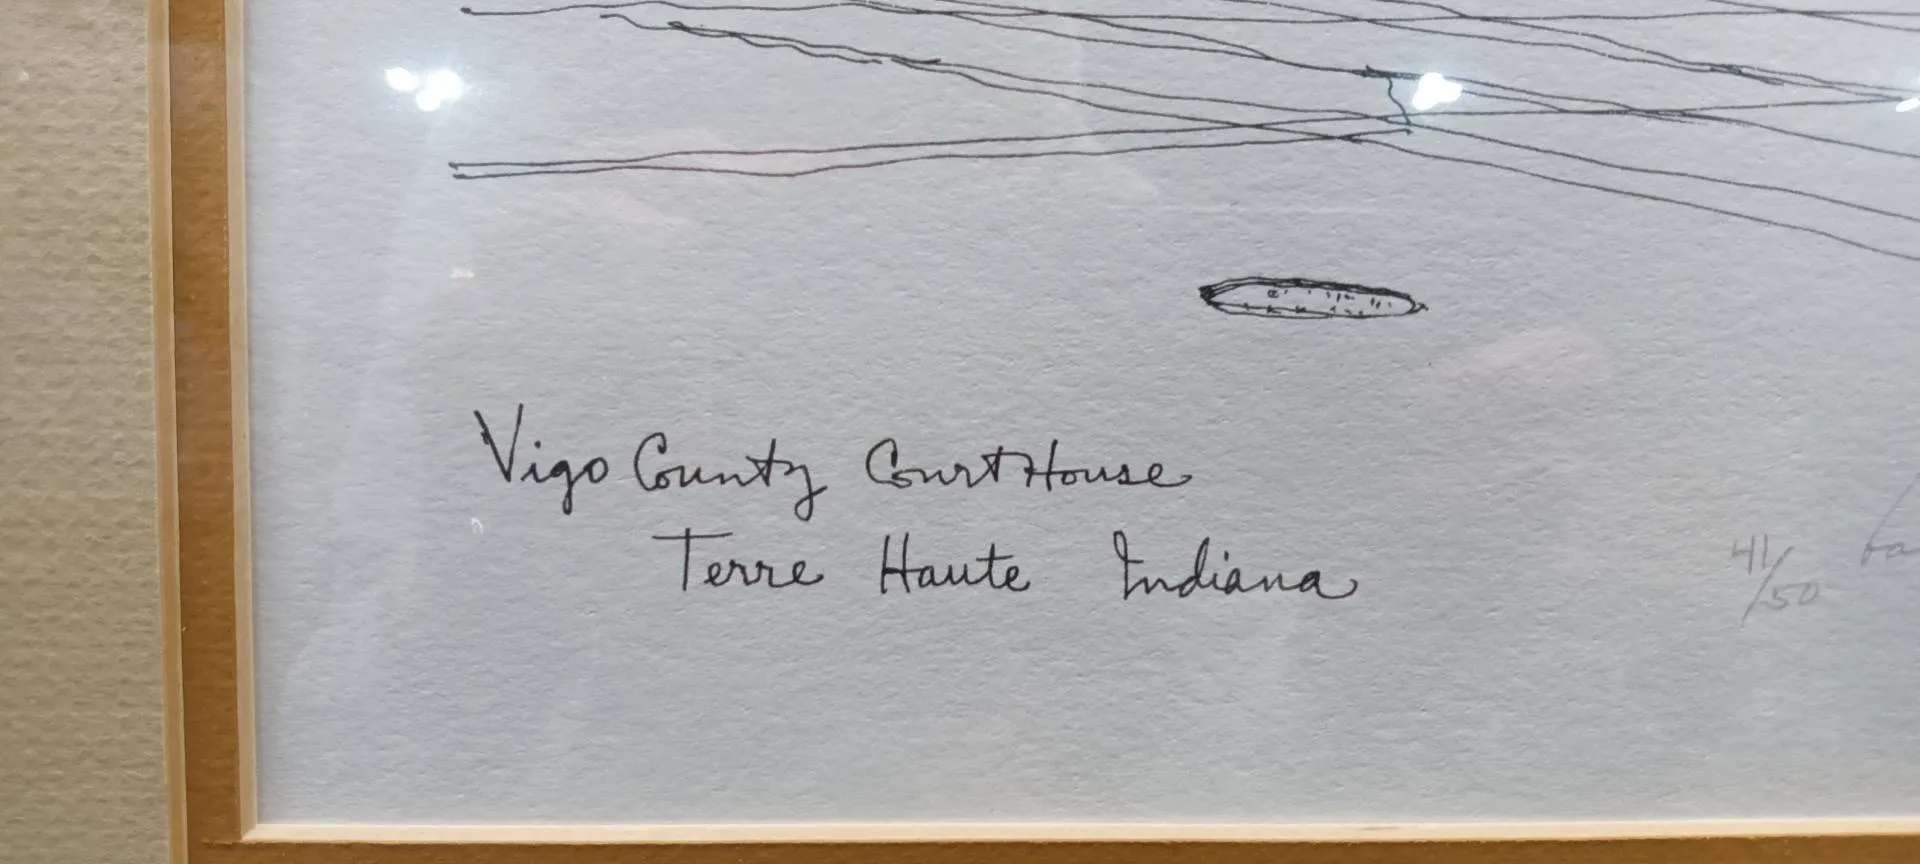 Vigo County CourtHouse
Terre Haute Indiana
41/50